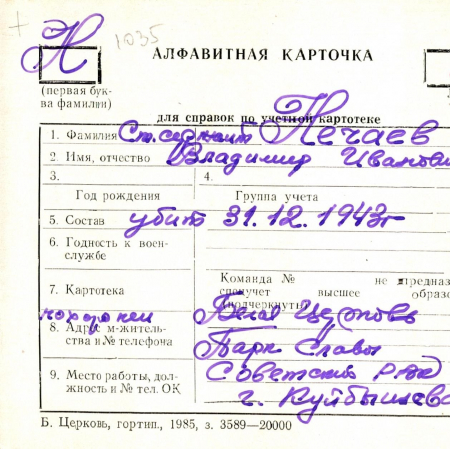 Н 1035
АЛФАВИТНАЯ КАРТОЧКА
(первая бук-
ва фамилии)
для справок по учетной картотеке
1. Фамилия Ст. сержант Нечаев
2. Имя, отчество Владимир Иванови
3. 4.
Год рождения Группа учета
5. Состав убит 31.12.1943г
6. Годность к воен-
службе
Команда № не предназ
7. Картотека спецучет высшее образо
(подчеркнуть)
похоронен Белая Церковь
8. Адрес м-житель-
ства и № телефона Парк Славы
9. Место работы, дол-
жность и № тел. ОК Советский р-он
г. Куйбышева
Б. Церковь, гортип., 1985, з. 3589—20000